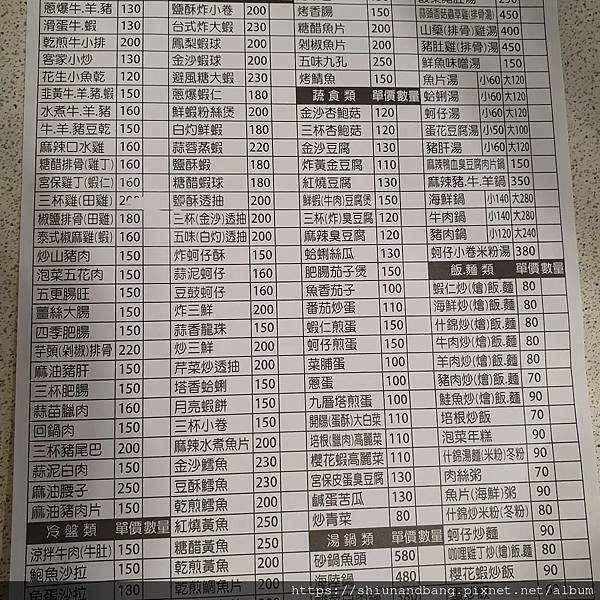 蔥爆牛.羊.豬 130
滑蛋牛.蝦 130
乾煎牛小排 200
客家小炒 130
花生小魚乾 120
韭黃牛.羊.豬.蝦 150
水煮牛.羊.豬 160
牛.羊.豬豆乾 150
麻辣口水雞 160
糖醋排骨(雞丁) 160
宮保雞丁(蝦仁) 160
三杯雞(田雞)
椒鹽排骨(田雞) 180
泰式椒麻雞(蝦) 160
炒山豬肉 150
泡菜五花肉 150
五更腸旺 150
薑絲大腸 150
四季肥腸 150
芋頭(剁椒)排骨 220
麻油豬肝 150
三杯肥腸 150
蒜苗臘肉 160
回鍋肉 150
三杯豬尾巴 200
蒜泥白肉 150
麻油腰子 250
麻油豬肉片 150
冷盤類 單價 數量
涼拌牛肉(牛肚) 150
鮑魚沙拉 150
魚蛋沙拉 150
鹽酥炸小卷 200
台式炸大蝦 230
鳳梨蝦球 200
金沙蝦球 200
避風糖大蝦 230
蔥爆蝦仁 180
鮮蝦粉絲煲 200
白灼鮮蝦 180
蒜蓉蒸蝦 220
鹽酥蝦 180
糖醋蝦球 180
鹽酥透抽 200
三杯(金沙)透抽 200
五味(白灼)透抽 200
炸蚵仔酥 150
蒜泥蚵仔 160
豆鼓蚵仔 160
炸三鮮 200
蒜香龍珠 150
炒三鮮 200
芹菜炒透抽 200
塔香蛤蜊 150
月亮蝦餅 200
三杯小卷 150
麻辣水煮魚片 200
金沙鱈魚 230
豆酥鱈魚 230
乾煎鱈魚 200
紅燒黃魚 250
糖醋黃魚 250
乾煎黃魚 200
乾煎鯛魚片 200
烤香腸 150
糖醋魚片 200
剁椒魚片 200
五味九孔 250
烤鯖魚 150
蔬食類 單價 數量
金沙杏鮑菇 120
三杯杏鮑菇 120
金沙豆腐 130
炸黃金豆腐 110
紅燒豆腐 130
鮮蝦(牛肉)豆腐煲 150
三杯(炸)臭豆腐 120
麻辣臭豆腐 120
蛤蜊絲瓜 130
肥腸茄子煲 150
魚香茄子 100
番茄炒蛋 110
蝦仁煎蛋 150
蚵仔煎蛋 150
菜脯蛋 100
蔥蛋 100
九層塔煎蛋 100
開腸(蛋酥)大白菜 110
培根(臘肉)高麗菜 110
櫻花蝦高麗菜 110
宮保皮蛋臭豆腐 130
鹹蛋苦瓜 130
炒青菜 80
湯鍋類 單價 數量
砂鍋魚頭 580
海陸鍋 480
蒜頭香菇蟲草雞(排骨湯) 450
山藥(排骨)雞湯 400
豬肚雞(排骨)湯 450
鮮魚味噌湯 150
魚片湯 小60 大120
蛤蜊湯 小60 大120
蚵仔湯 小60 大120
蛋花豆腐湯 小50 大100
豬肝湯 小60 大120
麻辣鴨血臭豆腐肉片鍋 150
麻辣豬.牛.羊鍋 350
海鮮鍋 小140 大280
牛肉鍋 小140 大280
豬肉鍋 小120 大240
蚵仔小卷米粉湯 380
飯.麵類 單價 數量
蝦仁炒(燴)飯.麵 80
海鮮炒(燴)飯.麵 80
什錦炒(燴)飯.麵 80
牛肉炒(燴)飯.麵 80
羊肉炒(燴)飯.麵 80
豬肉炒(燴)飯.麵 70
鮭魚炒(燴)飯.麵 90
培根炒飯 70
泡菜年糕 90
什錦湯麵(米粉)冬粉 90
肉絲粥 70
魚片(海鮮)粥 90
什錦炒米粉(冬粉) 80
蚵仔炒麵 90
咖哩雞丁炒(燴)飯.麵 80
櫻花蝦炒飯
https://shiunandbang.pixnet.net/album